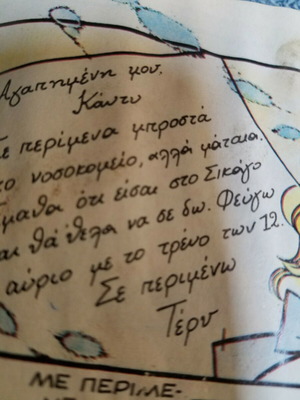 Αγαπημένη μου,
Κάντυ
Σε περίμενα μπροστά
το νοσοκομείο, αλλά μάταια.
μαθα ότι είσαι στο Σικάγο
αι θά 'θελα να σε δω. Φεύγω
αύριο με το τρένο των 12.
Σε περιμένω
Τέρυ
ΜΕ ΠΕΡΙΜΕ-